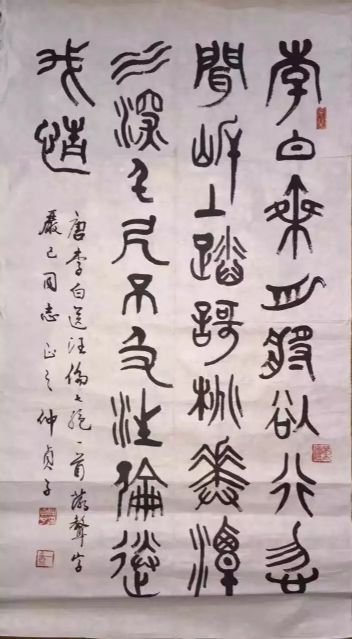 李白乘舟將欲行忽
聞岸上踏謌桃花潭
水深千尺不及汪倫送
我情
唐李白送汪倫七絕一首落聲字
嚴己同志正之仲貞子